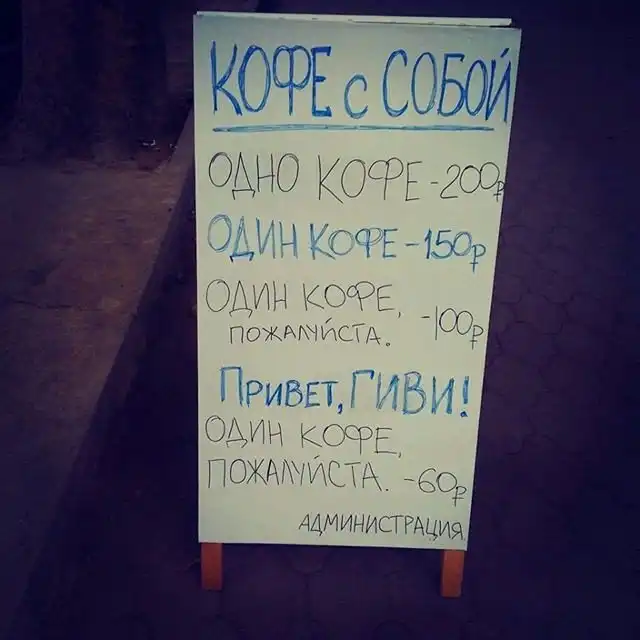 КОФЕ с СОБОЙ
ОДНО КОФЕ-200₽
ОДИН КОФЕ-150₽
ОДИН КОФЕ,
ПОЖАЛУЙСТА. -100₽
ПРИВЕТ, ГИВИ!
ОДИН КОФЕ,
ПОЖАЛУЙСТА. -60₽
АДМИНИСТРАЦИЯ.